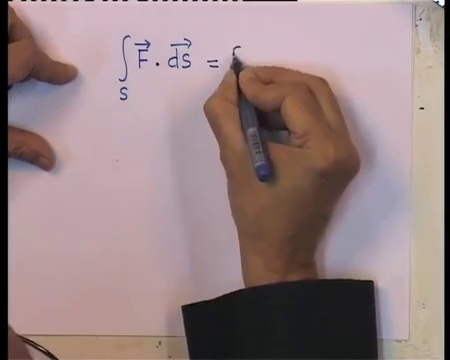 ∫_S F⃗ · ds⃗ =